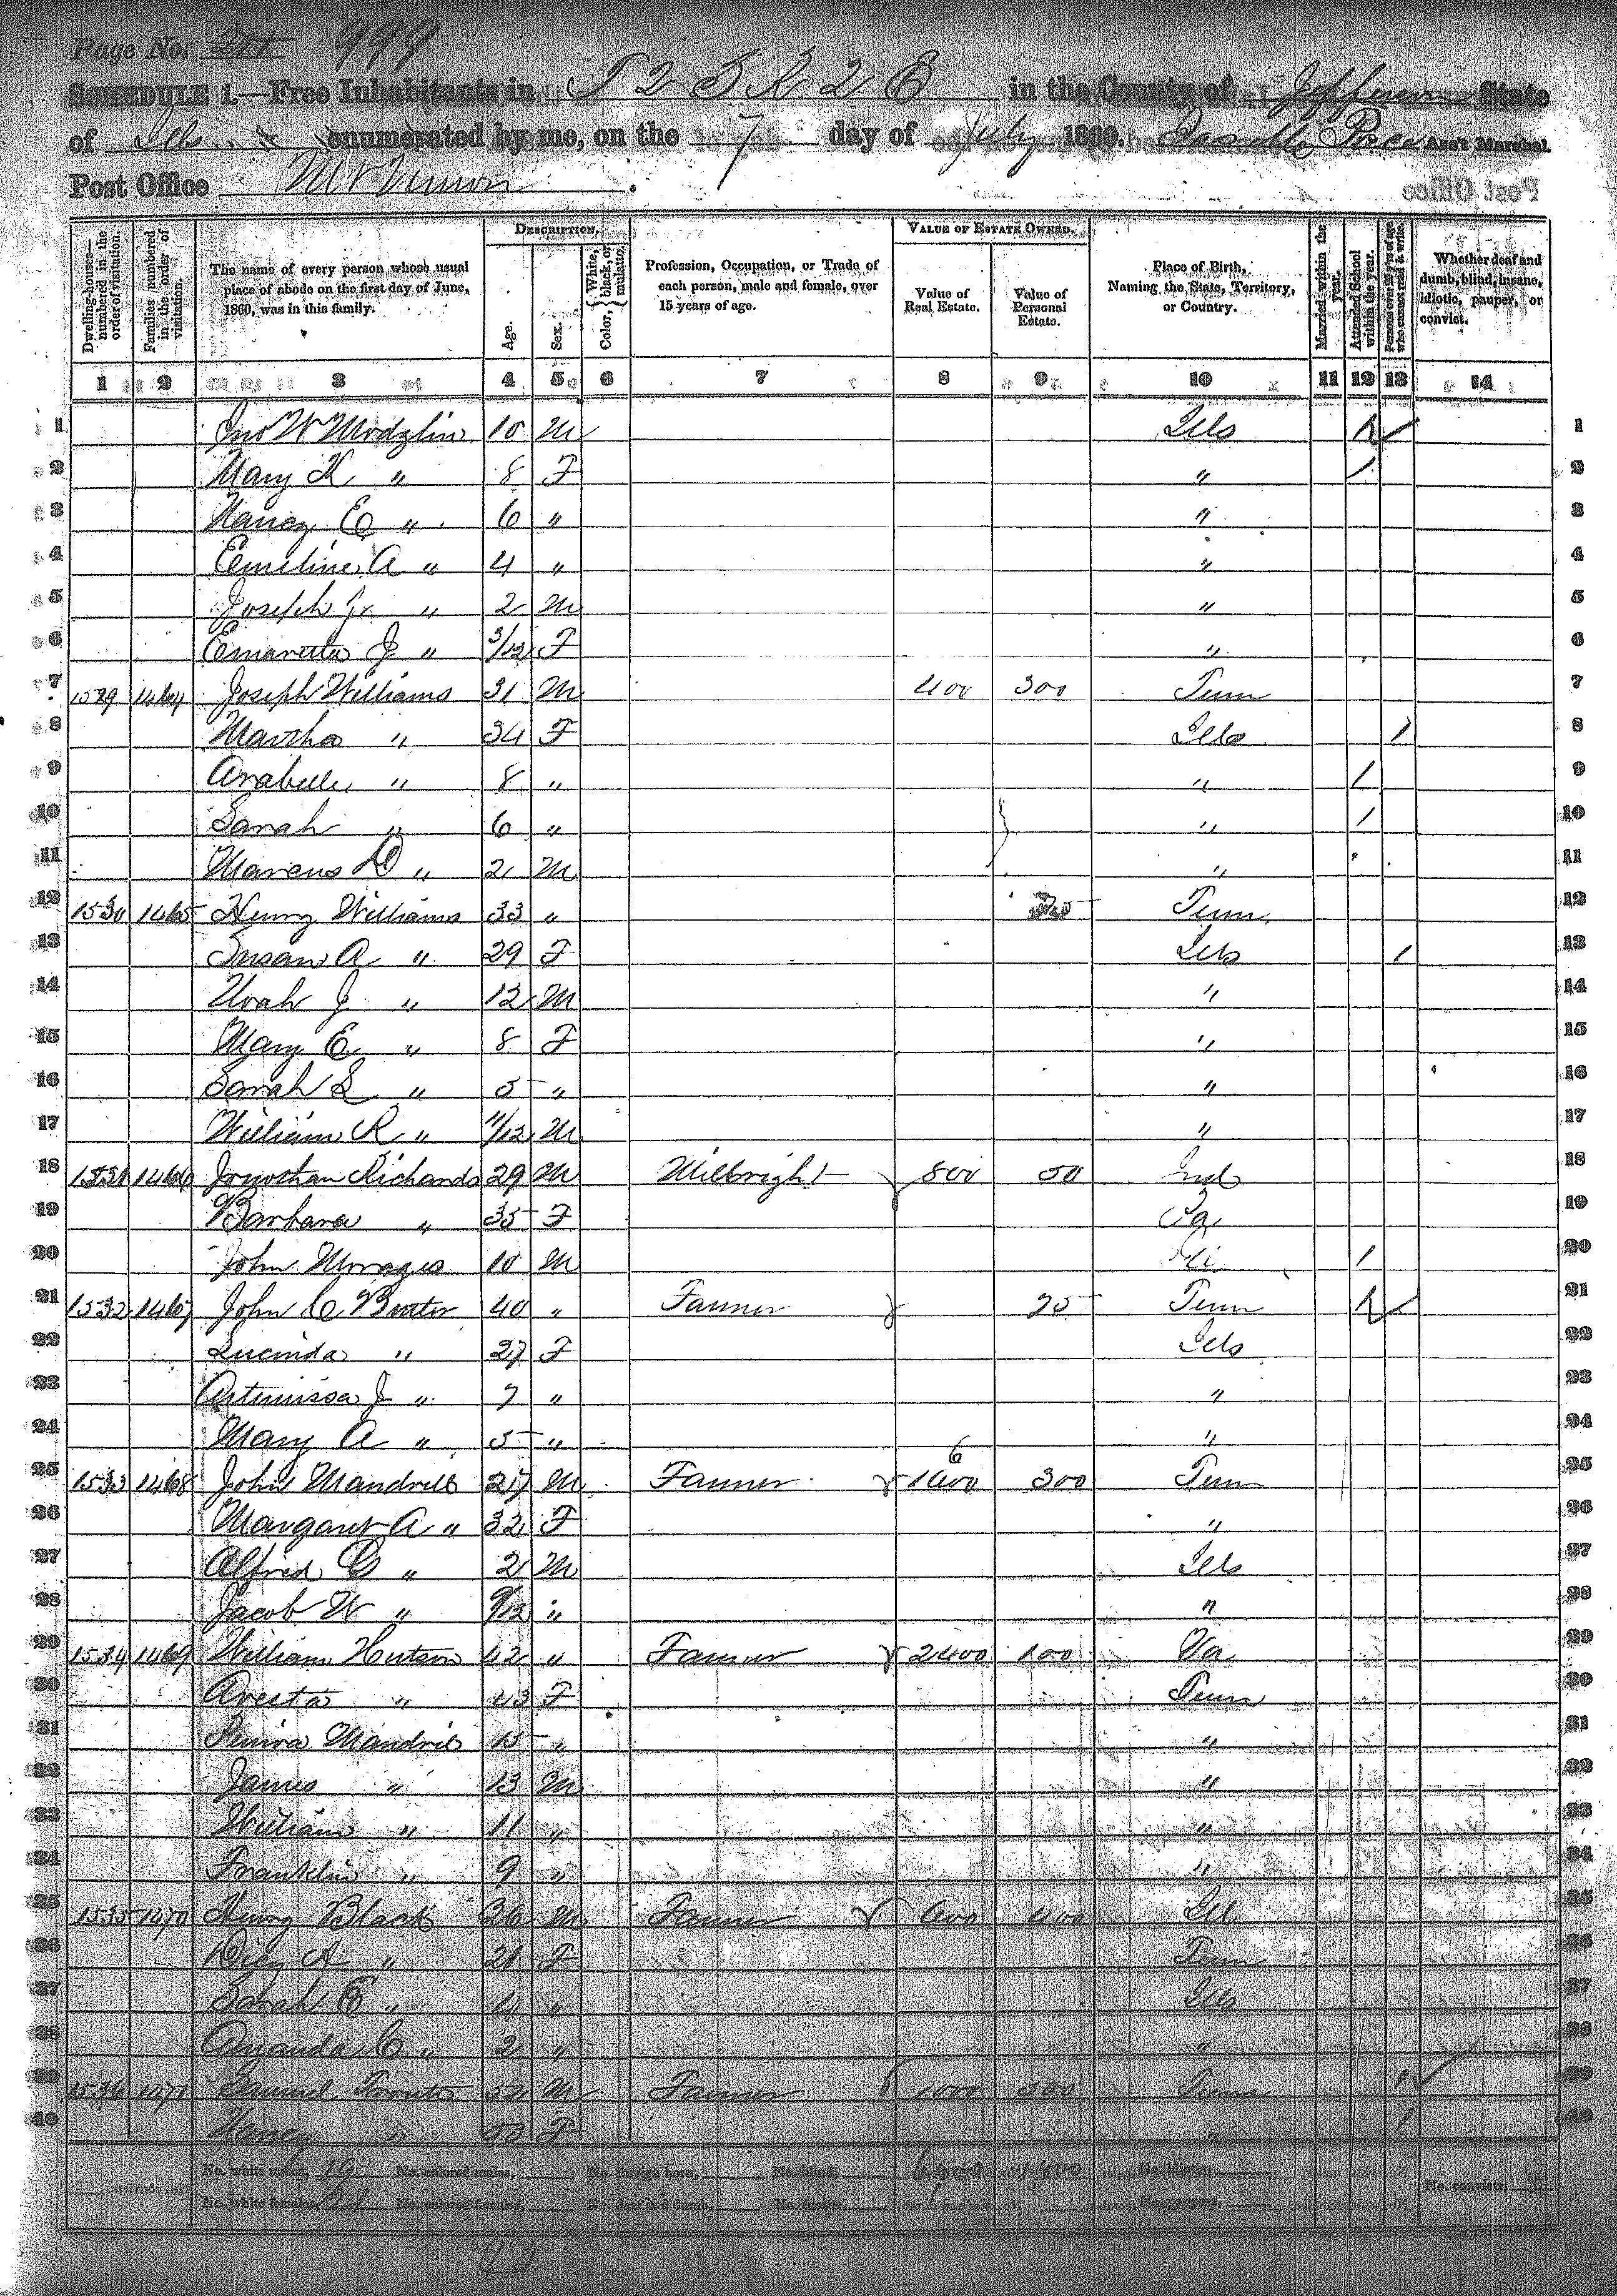 Page No. 999
SCHEDULE 1.—Free Inhabitants in T 2 S R 2 E in the County of Jefferson State
of Ills enumerated by me, on the 7 day of July 1860. Ass't Marshal.
Post Office Mt Vernon
Dwelling-houses—numbered in the order of visitation. Families numbered in the order of visitation. The name of every person whose usual place of abode on the first day of June, 1860, was in this family. DESCRIPTION. Age. Sex. Color, {White, black, or mulatto. Profession, Occupation, or Trade of each person, male and female, over 15 years of age. VALUE OF ESTATE OWNED. Value of Real Estate. Value of Personal Estate. Place of Birth, Naming the State, Territory, or Country. Married within the year. Attended School within the year. Persons over 20 y'rs of age who cannot read & write. Whether deaf and dumb, blind, insane, idiotic, pauper, or convict.
1 2 3 4 5 6 7 8 9 10 11 12 13 14
1 Jno W Modglin 10 M Ills 1
2 Mary K " 8 F " / 2
3 Nancy E " 6 " " 3
4 Emeline A " 4 " " 4
5 Joseph Jr " 2 M " 5
6 J " 3/12 F " 6
7 1529 1464 Joseph Williams 31 M 400 300 Tenn 7
8 Martha " 34 F Ills / 8
9 Arabelle " 8 " " / 9
10 Sarah " 6 " " / 10
11 Marcus D " 2 M " 11
12 1530 1465 Henry Williams 33 " Tenn 12
13 Susan A " 29 F Ills / 13
14 J " 12 M " 14
15 Mary E " 8 F " 15
16 Sarah L " 5 " " 16
17 William R " 11/12 M " 17
18 1531 1466 Jonothan Richards 29 M Millbright 800 50 Ind 18
19 Barbara " 35 F 19
20 John 10 M / 20
21 1532 1467 John C 40 " Farmer 25 Tenn 21
22 Lucinda " 27 F Ills 22
23 Artimissa J " 7 " " 23
24 Mary A " 5 " " 24
25 1533 1468 John Mandrell 27 M Farmer 300 Tenn 25
26 Margaret A " 32 F " 26
27 Alfred G " 2 M Ills 27
28 Jacob W " 9/12 " " 28
29 1534 1469 William Hutson 42 " Farmer 2400 100 Va 29
30 " 43 F Tenn 30
31 Mandrell 15 " " 31
32 James " 13 M " 32
33 William " 11 " " 33
34 Franklin " 9 " " 34
35 1535 1470 Henry Black 26 M Farmer 600 400 Ill 35
36 A " 21 F Tenn 36
37 Sarah E " 4 " Ills 37
38 Amanda C " 2 " " 38
39 1536 1471 Samuel 52 M Farmer 1000 300 Tenn / 39
40 Nancy " 53 F " / 40
No. white males, 19 No. colored males, No. foreign born, No. blind, No. idiotic,
No. white females, 21 No. colored females, No. deaf and dumb, No. insane, No. paupers, No. convicts,